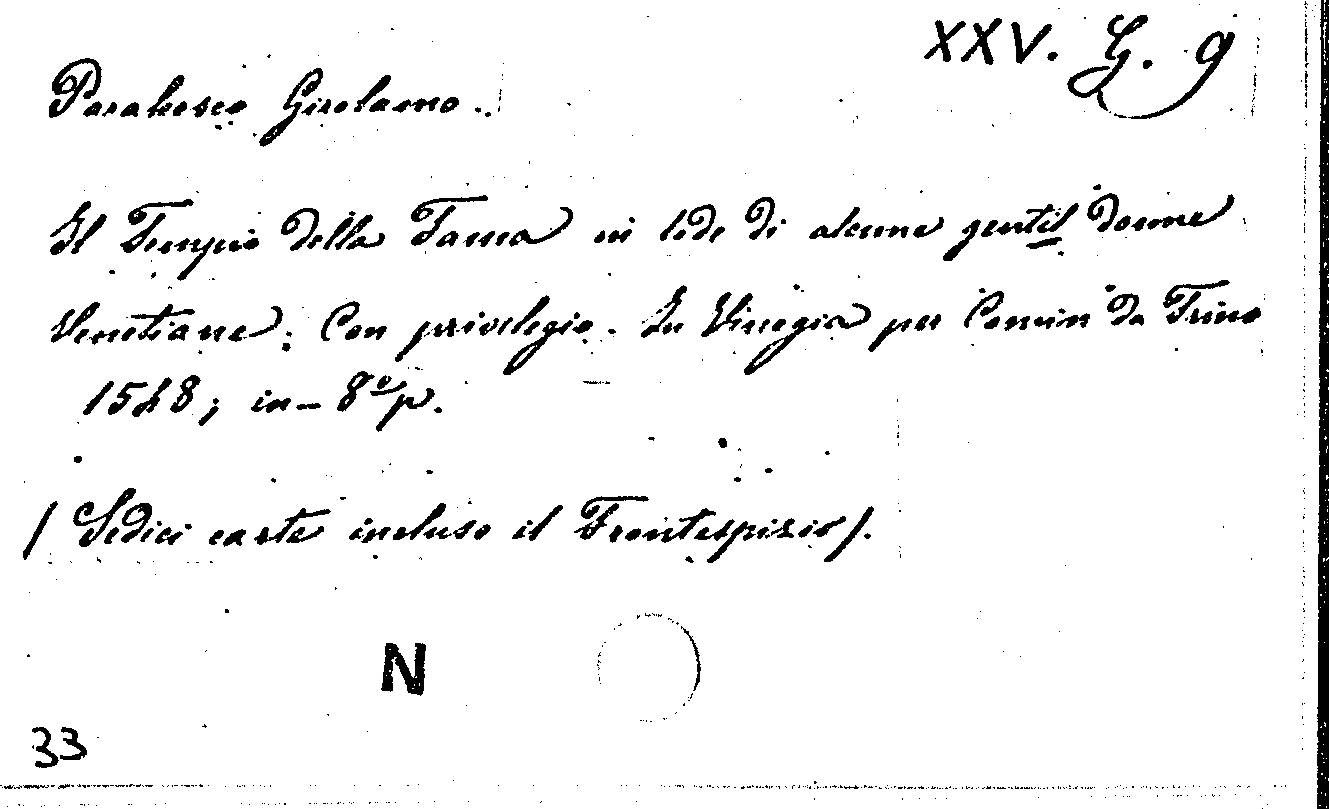 XXV. G. 9
Parabosco Girolamo.
Il Tempio della Fama in lode di alcune gentil donne
Venetiane. Con privilegio. In Vinegia per Comin da Trino
1548; in-8º p.
(Sedici carte incluso il Frontespizio).
N
33